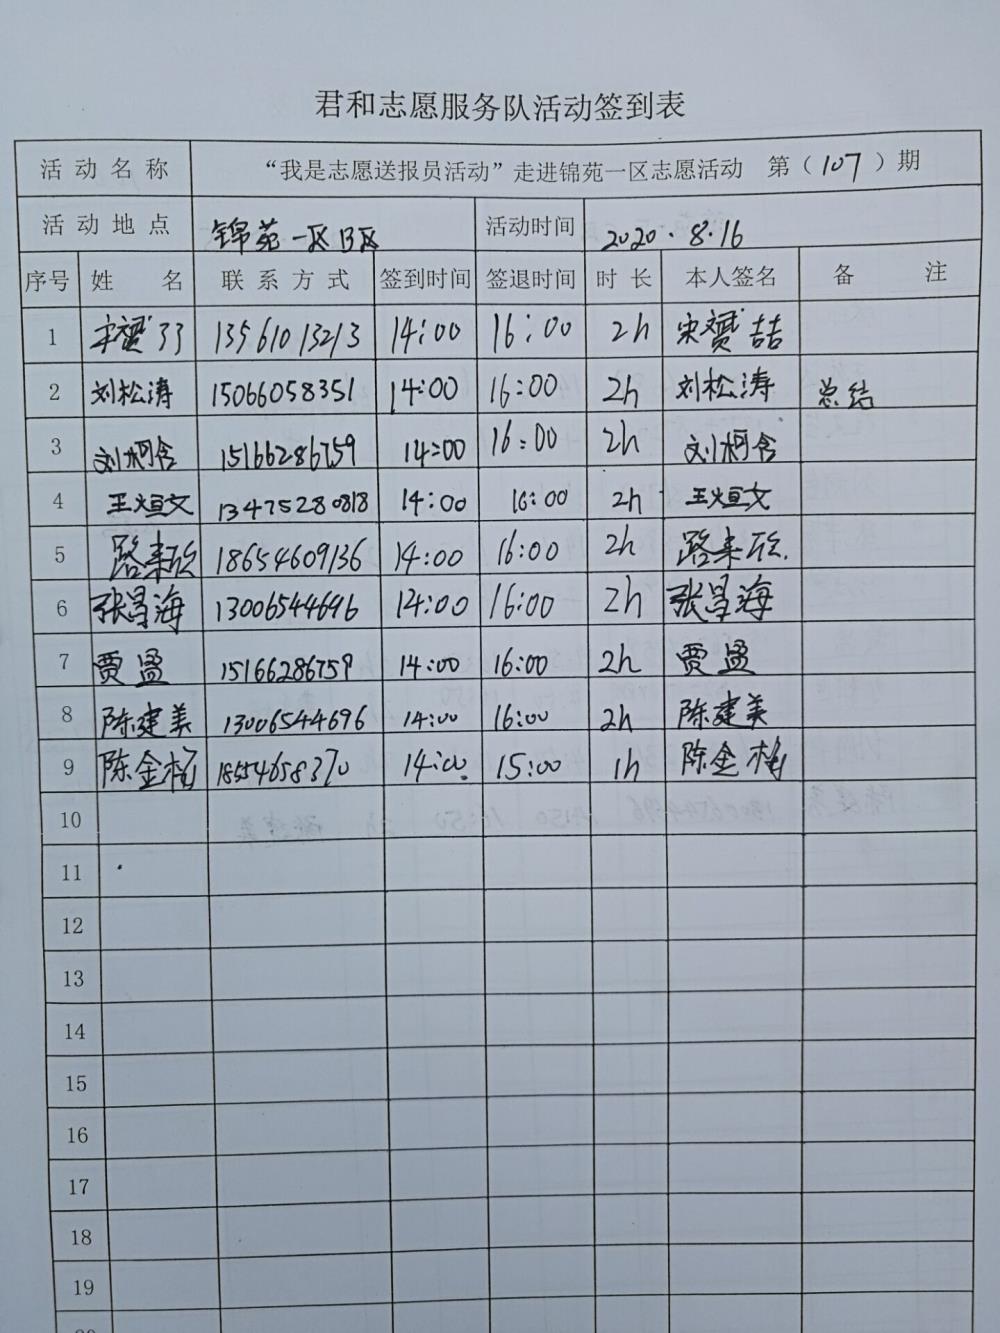 君和志愿服务队活动签到表
活动名称 “我是志愿送报员活动”走进锦苑一区志愿活动 第（107）期
活动地点 锦苑一区B区 活动时间 2020.8.16
序号 姓名 联系方式 签到时间 签退时间 时长 本人签名 备注
1 宋赟 13561013213 14:00 16:00 2h 宋赟喆
2 刘松涛 15066058351 14:00 16:00 2h 刘松涛 总结
3 刘柯含 15166286759 14:00 16:00 2h 刘柯含
4 王烜文 13475280818 14:00 16:00 2h 王烜文
5 路来欣 18654609136 14:00 16:00 2h 路来欣
6 张昌海 13006544696 14:00 16:00 2h 张昌海
7 贾孟 15166286759 14:00 16:00 2h 贾孟
8 陈建美 13006544696 14:00 16:00 2h 陈建美
9 陈金梅 18554658370 14:00 15:00 1h 陈金梅
10
11
12
13
14
15
16
17
18
19